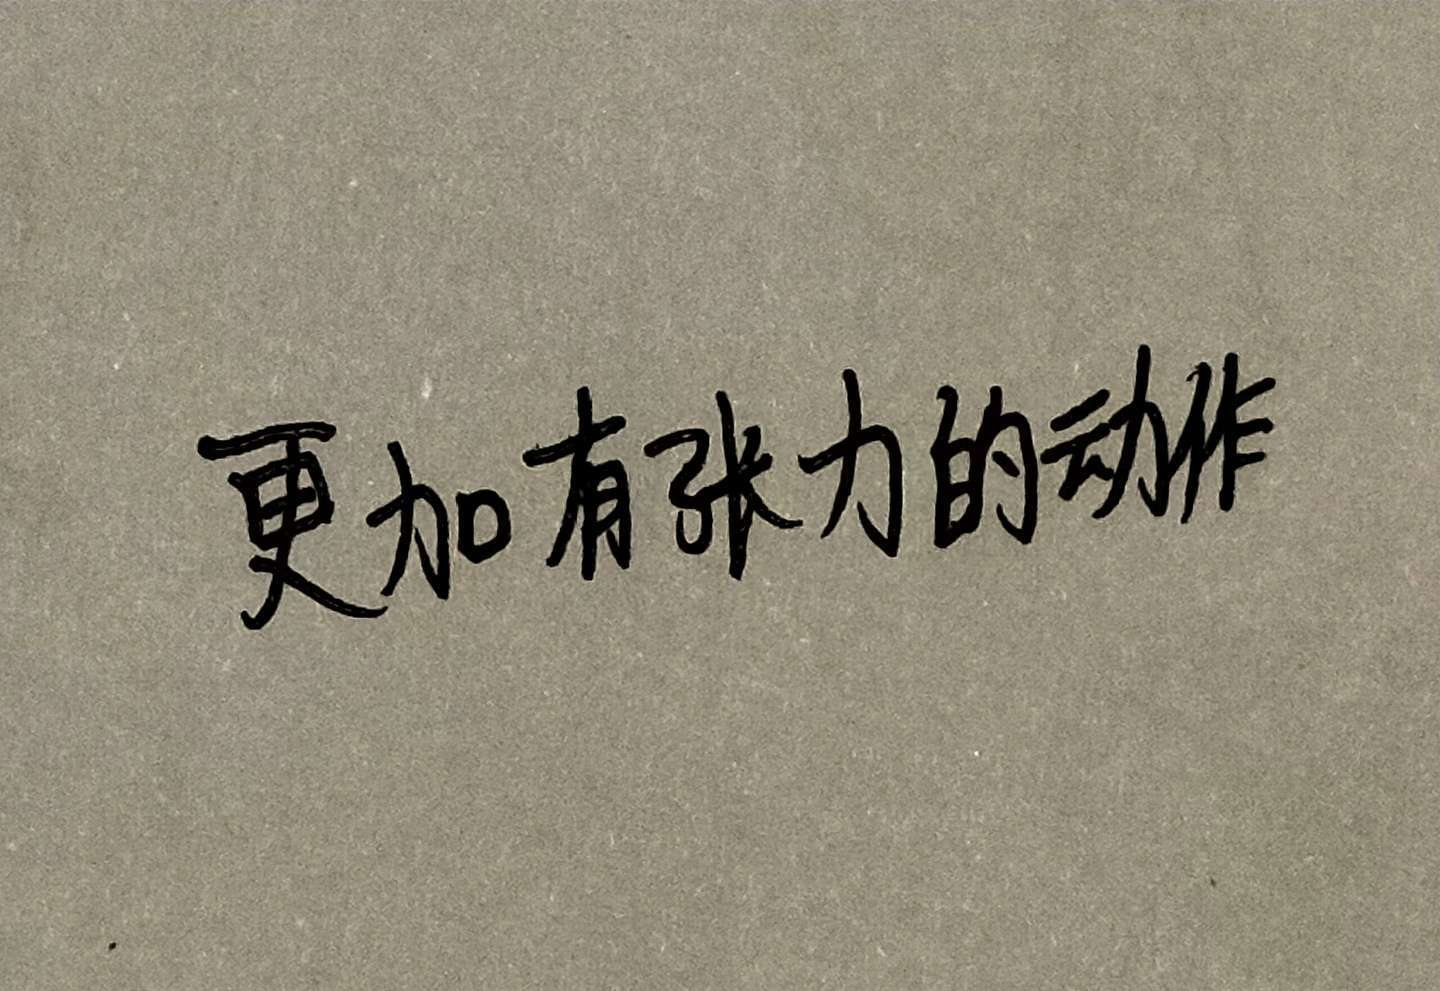 更加有张力的动作